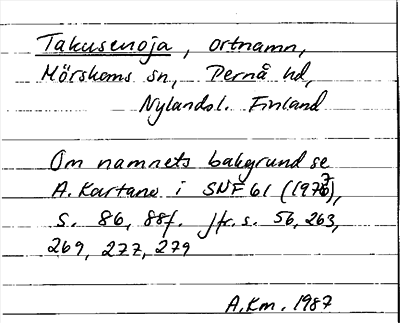 Takusenoja, ortnamn,
Mörskoms sn, Pernå hd,
Nylandsl. Finland
Om namnets bakgrund se
A. Kartano i SNF 61 (1978),
s. 86, 88f. Jfr. s. 56, 263,
269, 277, 279
A.Km. 1987